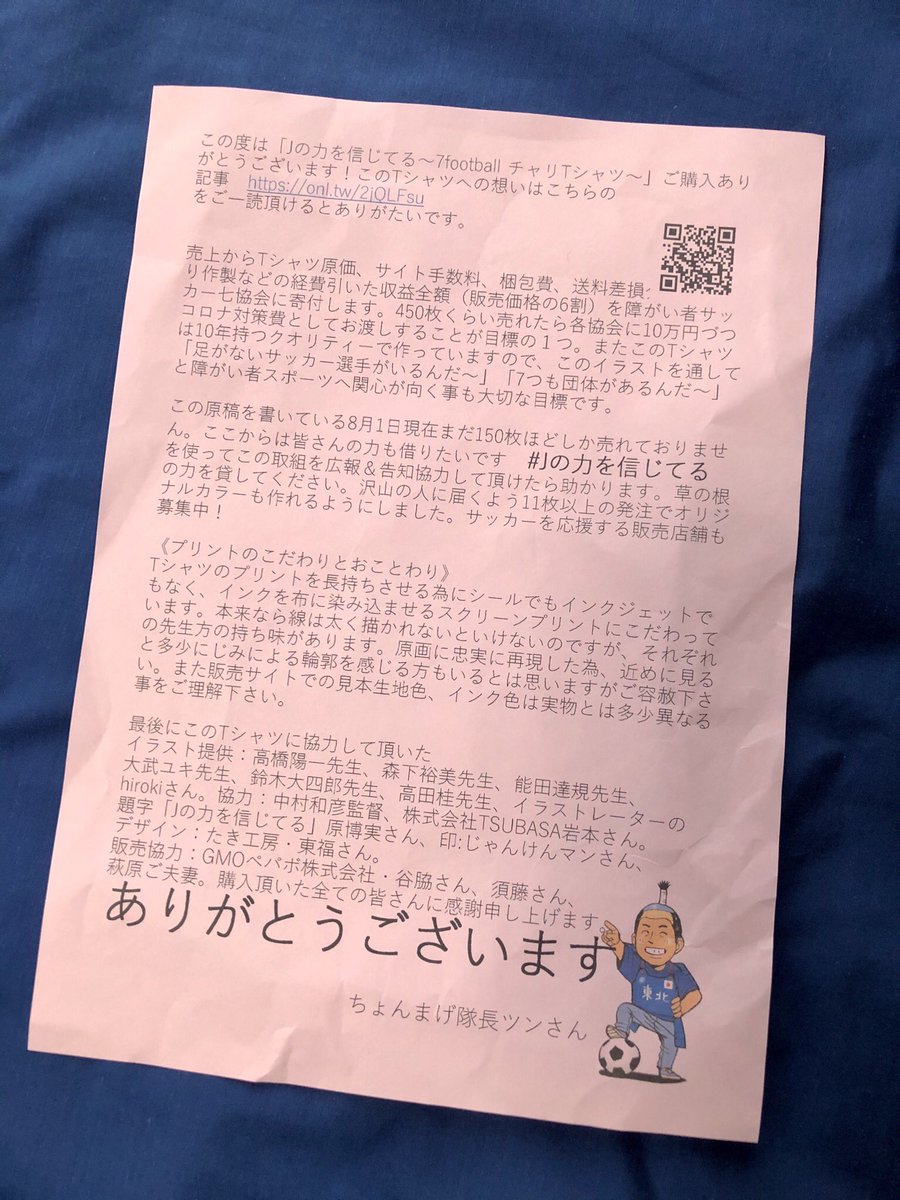 この度は「Jの力を信じてる〜7football チャリTシャツ〜」ご購入あり
がとうございます！このTシャツへの想いはこちらの
記事　https://onl.tw/2jQLFsu
をご一読頂けるとありがたいです。
売上からTシャツ原価、サイト手数料、梱包費、送料差損
り作製などの経費引いた収益全額（販売価格の6割）を障がい者サッ
カー七協会に寄付します。450枚くらい売れたら各協会に10万円づつ
コロナ対策費としてお渡しすることが目標の１つ。またこのTシャツ
は10年持つクオリティーで作っていますので、このイラストを通して
「足がないサッカー選手がいるんだ〜」「7つも団体があるんだ〜」
と障がい者スポーツへ関心が向く事も大切な目標です。
この原稿を書いている8月1日現在まだ150枚ほどしか売れておりませ
ん。ここからは皆さんの力も借りたいです　#Jの力を信じてる
を使ってこの取組を広報＆告知協力して頂けたら助かります。草の根
の力を貸してください。沢山の人に届くよう11枚以上の発注でオリジ
ナルカラーも作れるようにしました。サッカーを応援する販売店舗も
募集中！
《プリントのこだわりとおことわり》
Tシャツのプリントを長持ちさせる為にシールでもインクジェットで
もなく、インクを布に染み込ませるスクリーンプリントにこだわって
います。本来なら線は太く描かれないといけないのですが、それぞれ
の先生方の持ち味があります。原画に忠実に再現した為、近めに見る
と多少にじみによる輪郭を感じる方もいるとは思いますがご容赦下さ
い。また販売サイトでの見本生地色、インク色は実物とは多少異なる
事をご理解下さい。
最後にこのTシャツに協力して頂いた
イラスト提供：高橋陽一先生、森下裕美先生、能田達規先生、
大武ユキ先生、鈴木大四郎先生、高田桂先生、イラストレーターの
hirokiさん。協力：中村和彦監督、株式会社TSUBASA岩本さん。
題字「Jの力を信じてる」原博実さん、印:じゃんけんマンさん、
デザイン：たき工房・東福さん。
販売協力：GMOペパボ株式会社・谷脇さん、須藤さん、
萩原ご夫妻。購入頂いた全ての皆さんに感謝申し上げます。
ありがとうございます
東北
ちょんまげ隊長ツンさん